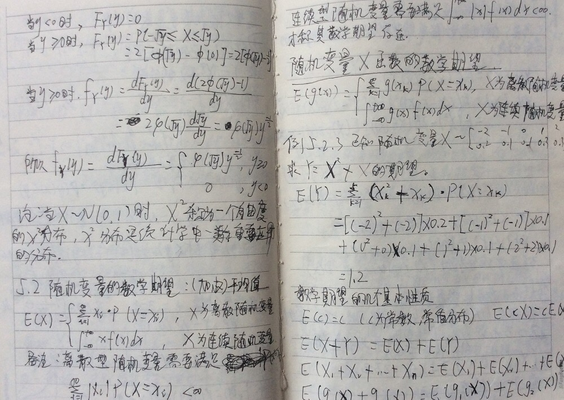 当y<0时, F_Y(y)=0
当y≥0时, F_Y(y)=P(-√y≤X≤√y)
=2[Φ(√y)-Φ(0)]=2Φ(√y)-1
当y≥0时, f_Y(y)=dF_Y(y)/dy=d(2Φ(√y)-1)/dy
=2φ(√y)d√y/dy=φ(√y)y^{-1/2}
所以 f_Y(y)=dF_Y(y)/dy={φ(√y)y^{-1/2}, y≥0
0, y<0
X~N(0,1)时, X²一个自由度
的X²分布, X²分布是统计学中
的分布.
5.2 随机变量的数学期望:(加权)平均值
E(X)={Σ xᵢ·P(X=xᵢ), X为离散随机变量
∫xf(x)dx, X为连续随机变量
离散型随机变量需要满足
Σ|xᵢ|P(X=xᵢ)<∞
连续型随机变量需要满足∫|x|f(x)dx<∞.
其数学期望存在.
随机变量X函数的数学期望
E(g(x))={Σg(xₖ)P(X=xₖ), X为离散随机变量
∫g(x)f(x)dx, X为连续随机变量
例5.2.3 已知随机变量X~[-2 -1 0 1 2
求Y=X²+X的期望.
E(Y)=Σ(xₖ²+xₖ)·P(X=xₖ)
=[(-2)²+(-2)]×0.2+[(-1)²+(-1)]×0.1
+(0²+0)×0.1+(1²+1)×0.1+(2²+2)×0
=1.2
数学期望的几个基本性质
E(c)=c (c为常数, 常值分布) E(cX)=cE(X
E(X+Y)=E(X)+E(Y)
E(X₁+X₂+…+Xₙ)=E(X₁)+E(X₂)+…+E(
E(g₁(X)+g₂(X))=E(g₁(X))+E(g₂(X))